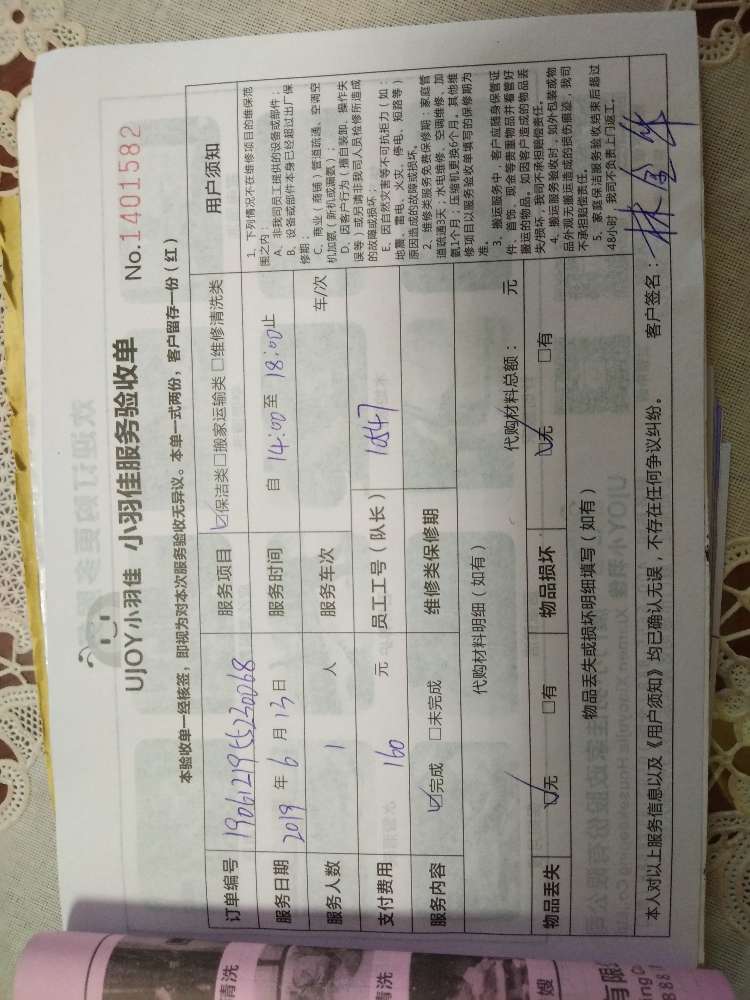 UJOY小羽佳 小羽佳服务验收单 No.1401582
本验收单一经核签，即视为对本次服务验收无异议。本单一式两份，客户留存一份（红）
订单编号 服务项目 ☑保洁类□搬家运输类 □维修清洗类 用户须知
服务日期 2019 年 6 月 13 日 服务时间 自 14:00 至 18:00止
服务人数 1 人 服务车次 车/次
支付费用 160 元 员工工号（队长） 1547
服务内容 ☑完成 □未完成 维修类保修期
代购材料明细（如有） 代购材料总额： 元
物品丢失 ☑无 □有 物品损坏 ☑无 □有
物品丢失或损坏明细填写（如有）
1、下列情况不在维修项目的维保范
围之内：
A、非我司员工提供的设备或部件；
B、设备或部件本身已经超过出厂保
修期；
C、商业（商铺）管道疏通、空调空
机加氨（新机或漏氨）；
D、因客户行为（擅自装卸、操作失
误等）或另请非我司人员检修所造成
的故障或损坏；
E、因自然灾害等不可抗拒力（如：
地震、雷电、火灾、停电、短路等）
原因造成的故障或损坏。
2、维修类服务免费保修期：家庭管
道疏通3天；水电维修、空调维修、加
氨1个月；压缩机更换6个月。其他维
修项目以服务验收单填写的保修期为
准。
3、搬运服务中，客户应随身保管证
件、首饰、现金等贵重物品并看管好
搬运的物品。如因客户造成的物品丢
失/损坏，我司不承担赔偿责任。
4、搬运服务验收时，如外包装或物
品外观无搬运造成的损伤痕迹，我司
不承担赔偿责任。
5、家庭保洁服务验收结束后超过
48小时，我司不负责上门返工。
本人对以上服务信息以及《用户须知》均已确认无误，不存在任何争议纠纷。 客户签名：林金华
清洗
清洗
嫂
有限
ng C